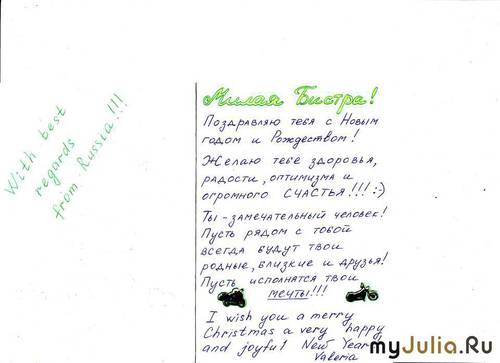 With best
regards
from Russia!!!
Милая Бистра!
Поздравляю тебя с Новым
годом и Рождеством!
Желаю тебе здоровья,
радости, оптимизма и
огромного СЧАСТЬЯ!!! :-)
Ты - замечательный человек!
Пусть рядом с тобой
всегда будут твои
родные, близкие и друзья!
Пусть исполнятся твои
мечты!!!
I wish you a merry
Christmas a very happy
and joyful New Year!
Valeria
myJulia.Ru